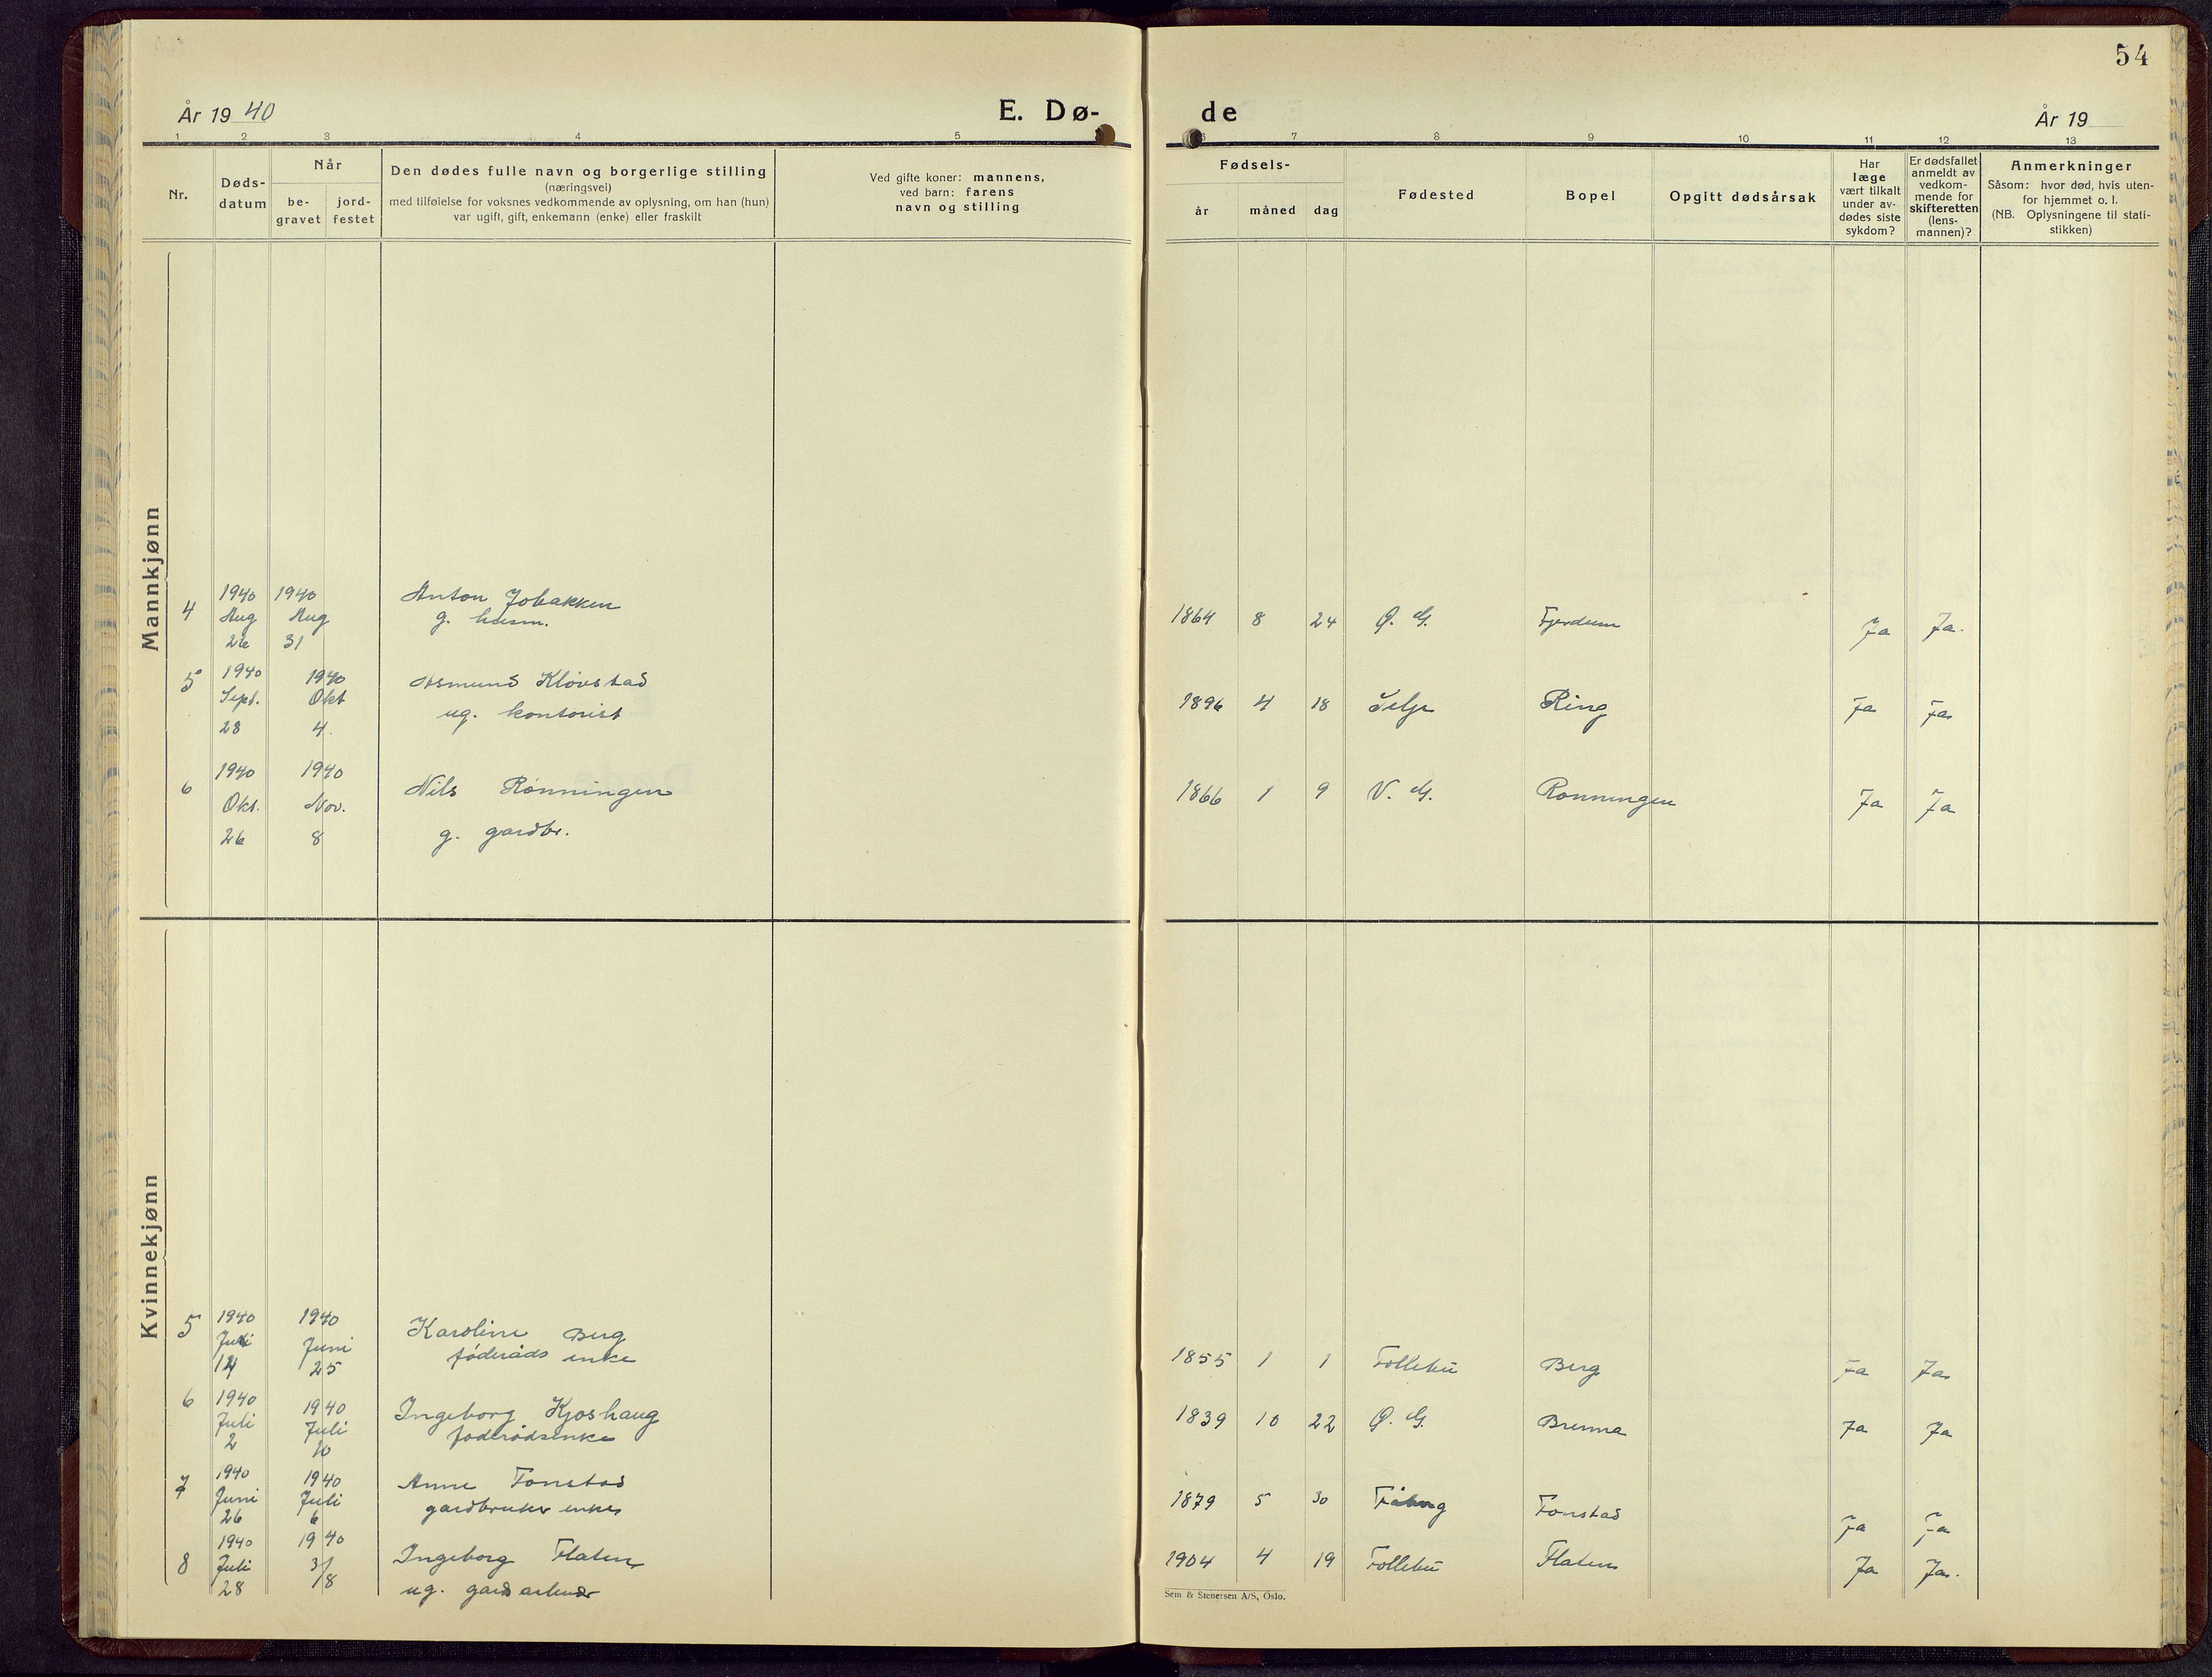 54
År 1940
E. Dø-
de
År 19
1 2 3 4 5
6 7 8 9 10 11 12 13
Nr.
Døds-
datum
Når
be-
gravet
jord-
festet
Den dødes fulle navn og borgerlige stilling
(næringsvei)
med tilføielse for voksnes vedkommende av oplysning, om han (hun)
var ugift, gift, enkemann (enke) eller fraskilt
Ved gifte koner: mannens,
ved barn: farens
navn og stilling
Fødsels-
år måned dag
Fødested
Bopel
Opgitt dødsårsak
Har
læge
vært tilkalt
under av-
dødes siste
sykdom?
Er dødsfallet
anmeldt av
vedkom-
mende for
skifteretten
(lens-
mannen)?
Anmerkninger
Såsom: hvor død, hvis uten-
for hjemmet o. l.
(NB. Oplysningene til stati-
stikken)
Mannkjønn
4
1940
Aug
26
1940
Aug
31
Anton Jobakken
g. husm.
1864 8 24 Ø. G. Fjerdum Ja Ja.
5
1940
Sept.
28
1940
Okt
4.
Asmund Kløvstad
ug. kontorist
1896 4 18 Selje Ring Ja Ja
6
1940
Okt.
26
1940
Nov.
8
Nils Rønningen
g. gardbr.
1866 1 9 V. G. Rønningen Ja Ja
Kvinnekjønn
5
1940
Juni
14
1940
Juni
25
Karoline Berg
føderåds enke
1855 1 1 Follebu Berg Ja Ja
6
1940
Juli
2
1940
Juli
10
Ingeborg Kjoshaug
føderådsenke
1839 10 22 Ø. G. Brenna Ja Ja
7
1940
Juni
26
1940
Juli
6
Anne Fonstad
gardbruker enke
1879 5 30 Fåberg Fonstad Ja Ja
8
1940
Juli
28
1940
3/8
Ingeborg Flaten
ug. gardarbeider
1904 4 19 Follebu Flaten Ja Ja.
Sem & Stenersen A/S, Oslo.